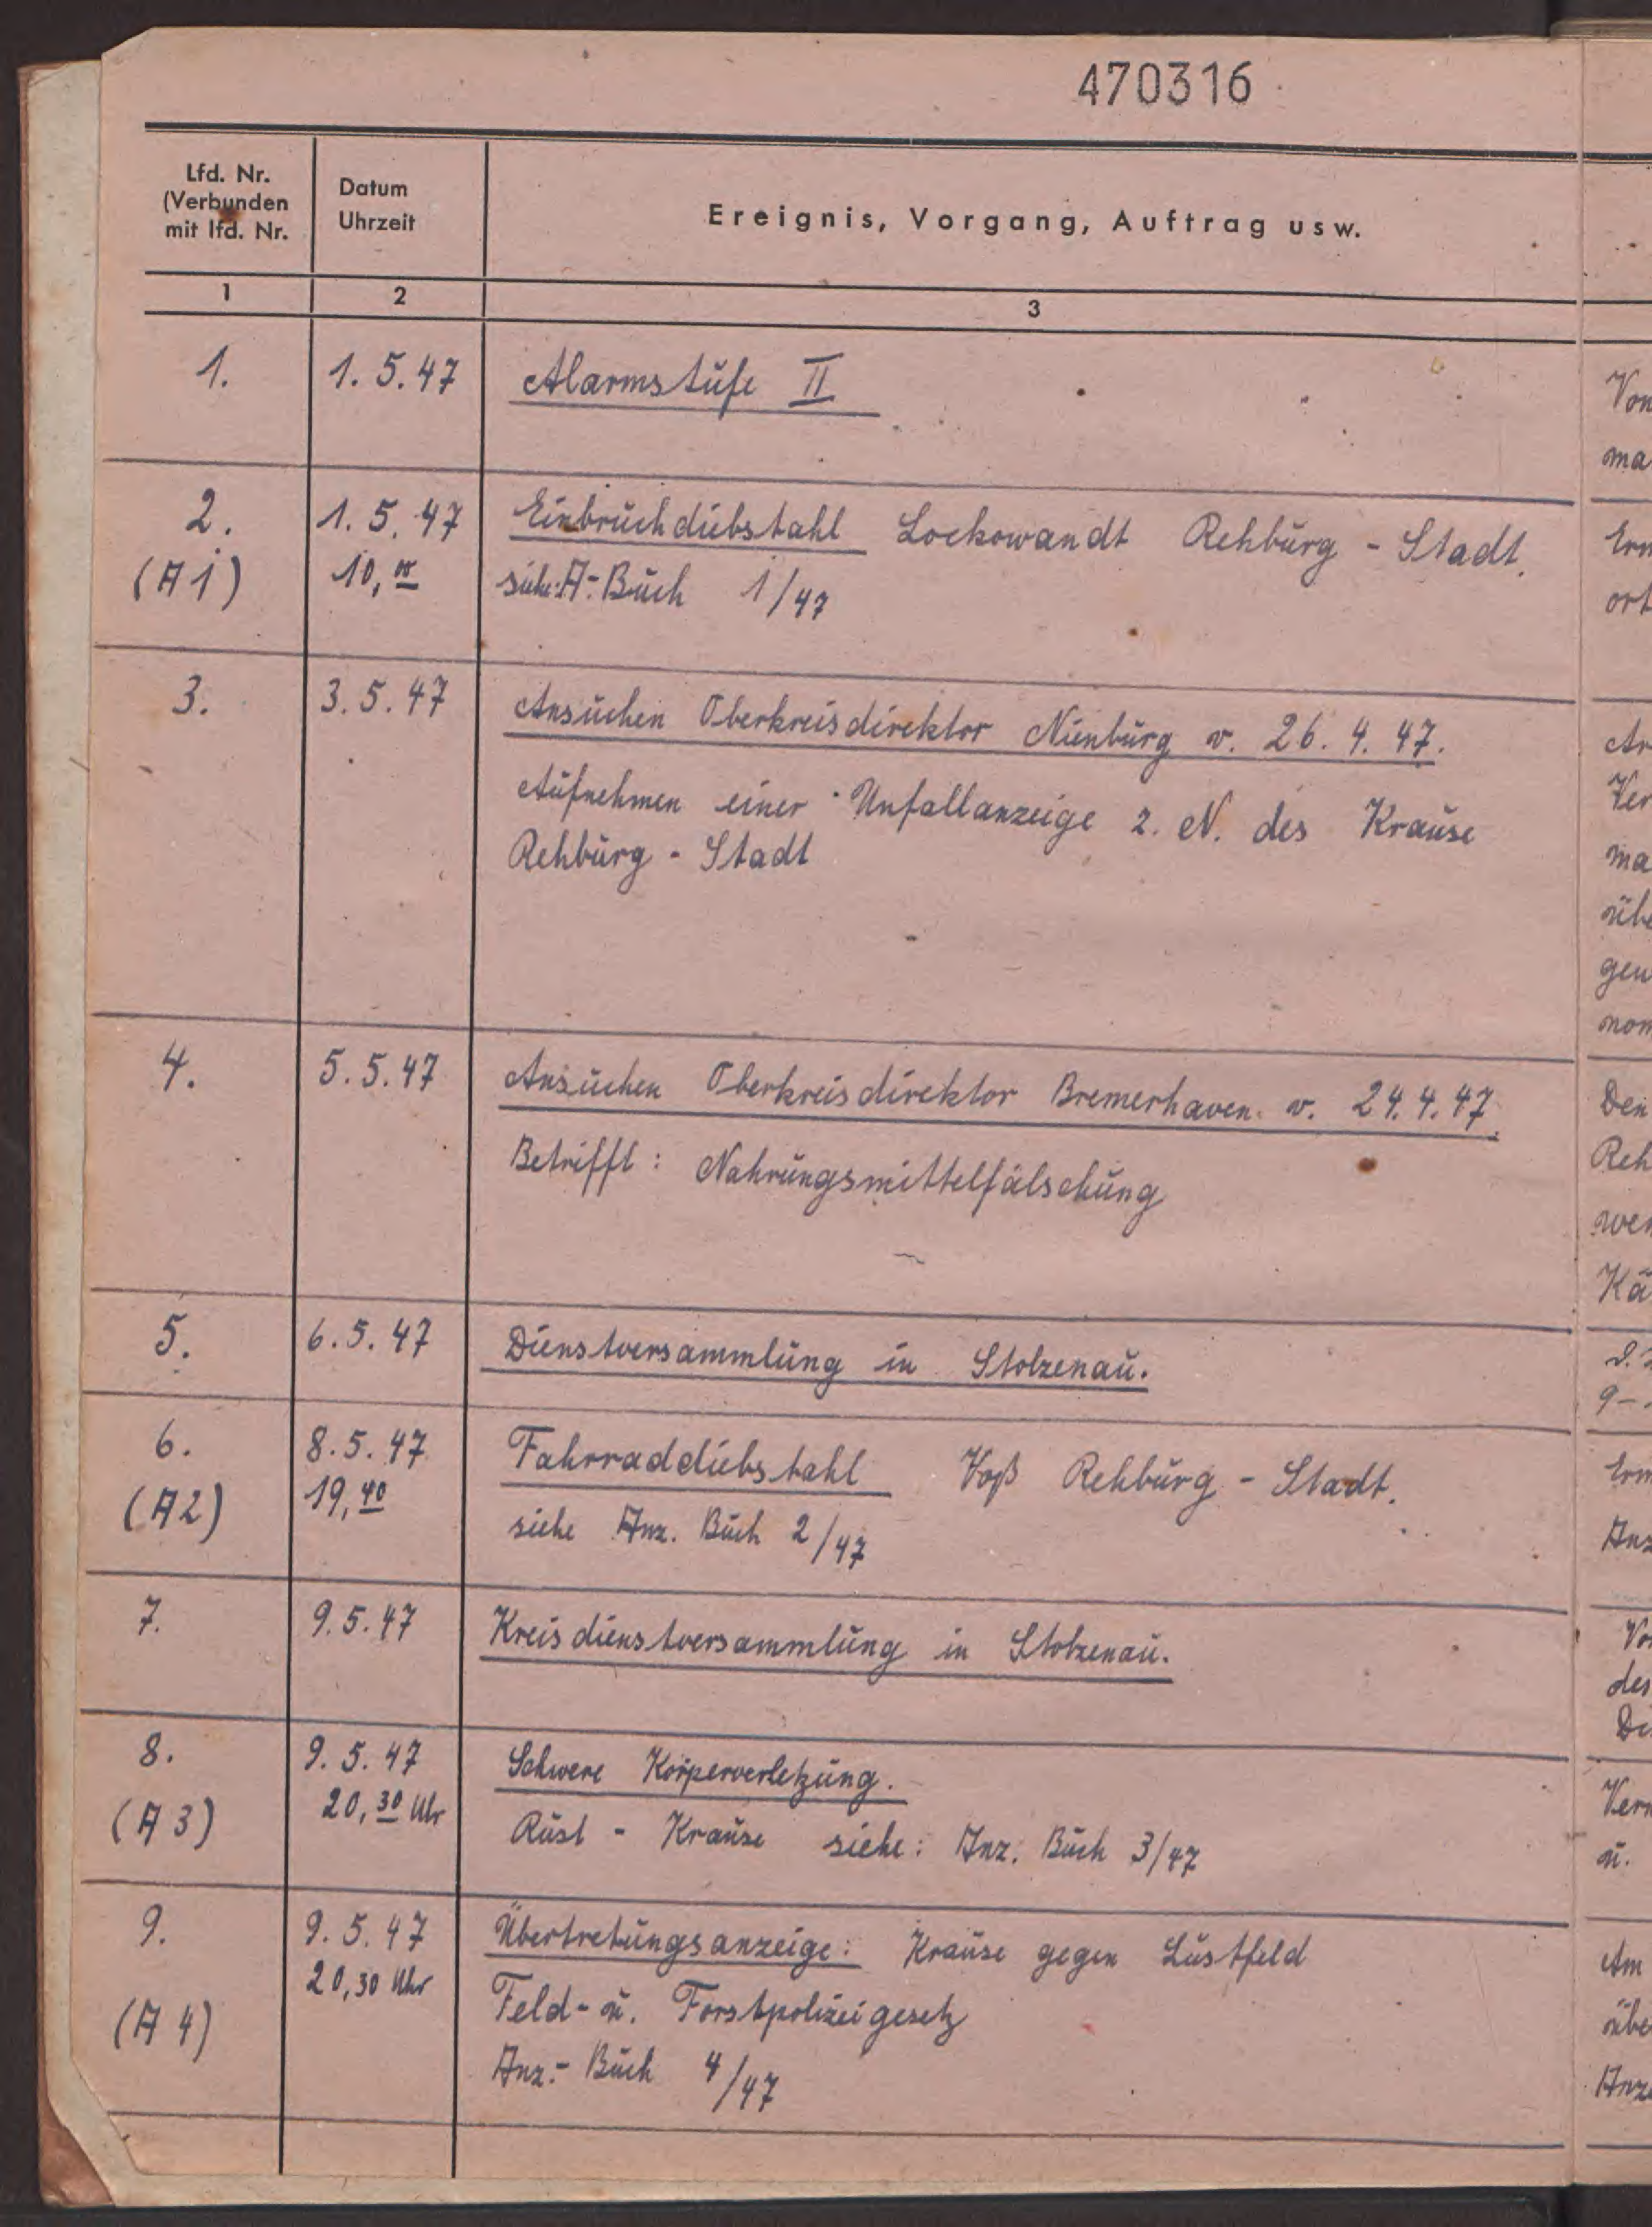 470316
Lfd. Nr.
(Verbunden
mit lfd. Nr.
Datum
Uhrzeit
Ereignis, Vorgang, Auftrag usw.
1 2 3
1. 1.5.47 Alarmstufe II
2. 1.5.47 Einbruchdiebstahl Lockowandt Rehburg - Stadt.
(A1) 10,00 siehe: A-Buch 1/47
3. 3.5.47 Ansuchen Oberkreisdirektor Nienburg v. 26.4.47.
Aufnehmen einer Unfallanzeige z. N. des Krause
Rehburg - Stadt
4. 5.5.47 Ansuchen Oberkreisdirektor Bremerhaven v. 24.4.47.
Betrifft: Nahrungsmittelfälschung
5. 6.5.47 Dienstversammlung in Stolzenau.
6. 8.5.47 Fahrraddiebstahl Voß Rehburg - Stadt.
(A2) 19,40 siehe Anz. Buch 2/47
7. 9.5.47 Kreisdienstversammlung in Stolzenau.
8. 9.5.47 Schwere Körperverletzung.
(A3) 20,30 Uhr Rust - Krause siehe: Anz. Buch 3/47
9. 9.5.47 Übertretungsanzeige: Krause gegen Lustfeld
20,30 Uhr Feld- u. Forstpolizeigesetz
(A4) Anz.- Buch 4/47